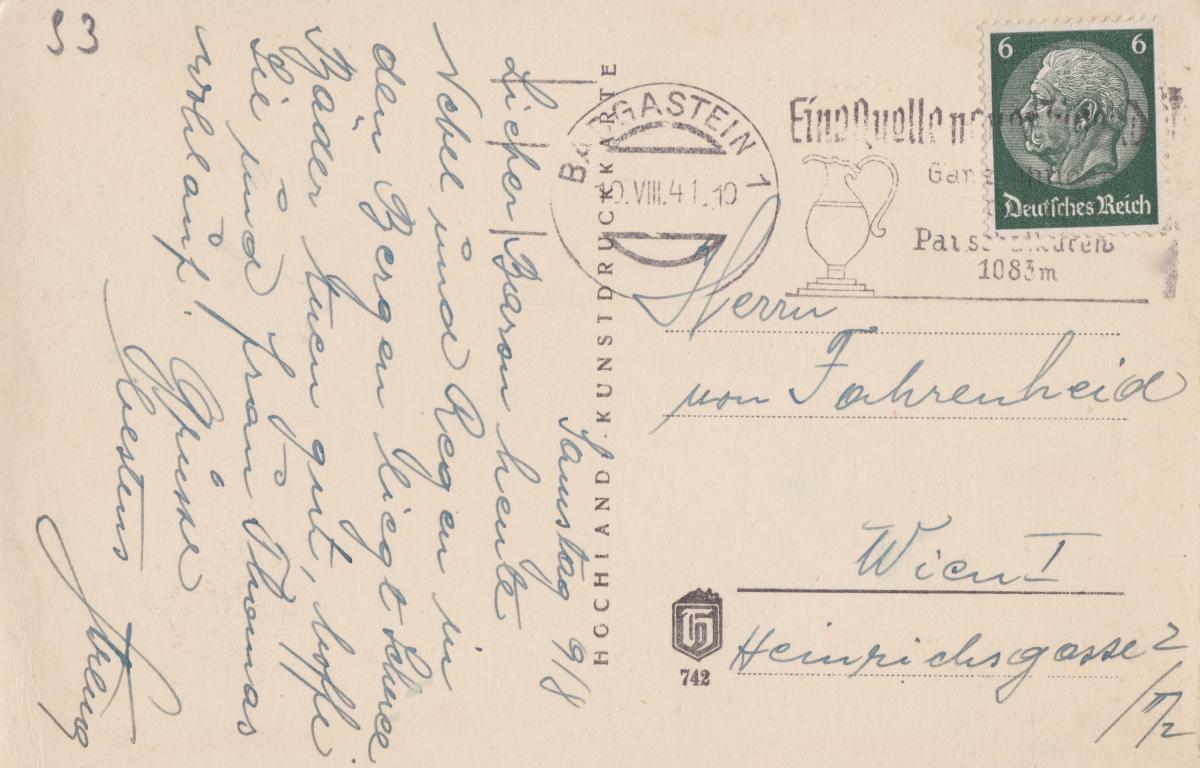 93
Samstag 9/8
Lieber Baron heute
Nebel und Regen in
den Bergen liegt Schnee
Bäder tuen gut, hoffe
Sie und Frau Thomas
wohlauf! Grüsse
bestens
HOCHLAND-KUNSTDRUCKKARTE
BADGASTEIN 1
VIII.41.19
Eine Quelle
Pauschalkuren
1083m
6 6
Deutsches Reich
Herrn
von Fahrenheid
Wien I
Heinrichsgasse 2
742